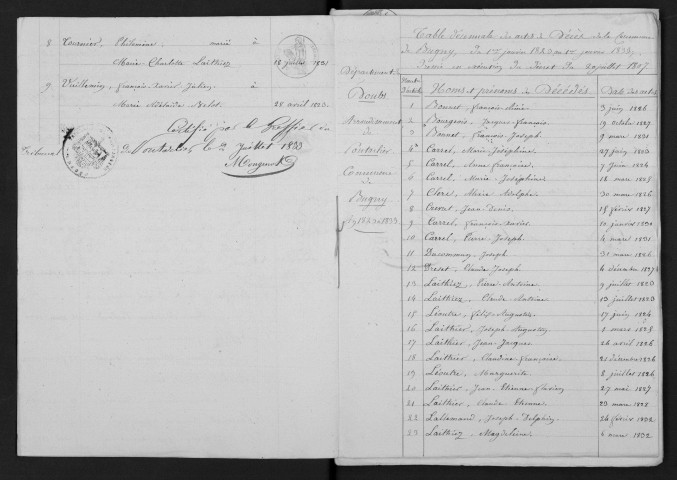 8 Tournier, Philémon, marié à
Marie Charlotte Laithiez 18 juillet 1831
9 Vuillemin, François Xavier Julien, à
Marie Adélaïde Belot 28 avril 1823.
Certifié par le Greffier du
Tribunal de Pontarlier le 2 Juillet 1833
Département
Doubs
Arrondissement
de
Pontarlier
Commune
de
Bugny
1823 à 1833
Table décennale des actes de Décès de la Commune
de Bugny, du 1er janvier 1823 au 1er janvier 1833,
dressée en exécution du Décret du 20 juillet 1807
Noms et prénoms des Décédés. Date des actes
1 Bouvet, François 3 juin 1826
2 Bourgeois, Jacques François 19 octobre 1827
3 Bonnet, François Joseph 9 mars 1831
4 Carrel, Marie Joséphine 27 juin 1823
5 Carrel, Anne Françoise 7 juin 1824
6 Carrel, Marie Joséphine 18 mars 1825
7 Clerc, Marie Adolphe 30 mars 1826
8 Jean Denis 15 février 1827
9 Carrel, François Xavier 10 janvier 1830
10 Carrel, Pierre Joseph 4 mars 1831
11 Joseph 31 mars 1826
12 Claude Joseph 4 décembre 1827
13 Laithiez, Pierre Antoine 9 juillet 1823
14 Laithiez, Claude Antoine 13 juillet 1823
15 Félix Augustin 17 juin 1824
16 Laithier, Joseph Augustin 1 mars 1825
17 Laithier, Jean Jacques 26 avril 1826
18 Laithier, Claudine Françoise 21 décembre 1826
19 Marguerite 8 juillet 1826
20 Laithier, Jean Etienne 27 mai 1827
21 Laithier, Claude Etienne 29 mars
22 Lallemand, Joseph Delphin 24 février 1832
23 Laithiez, Magdeleine 4 mars 1832